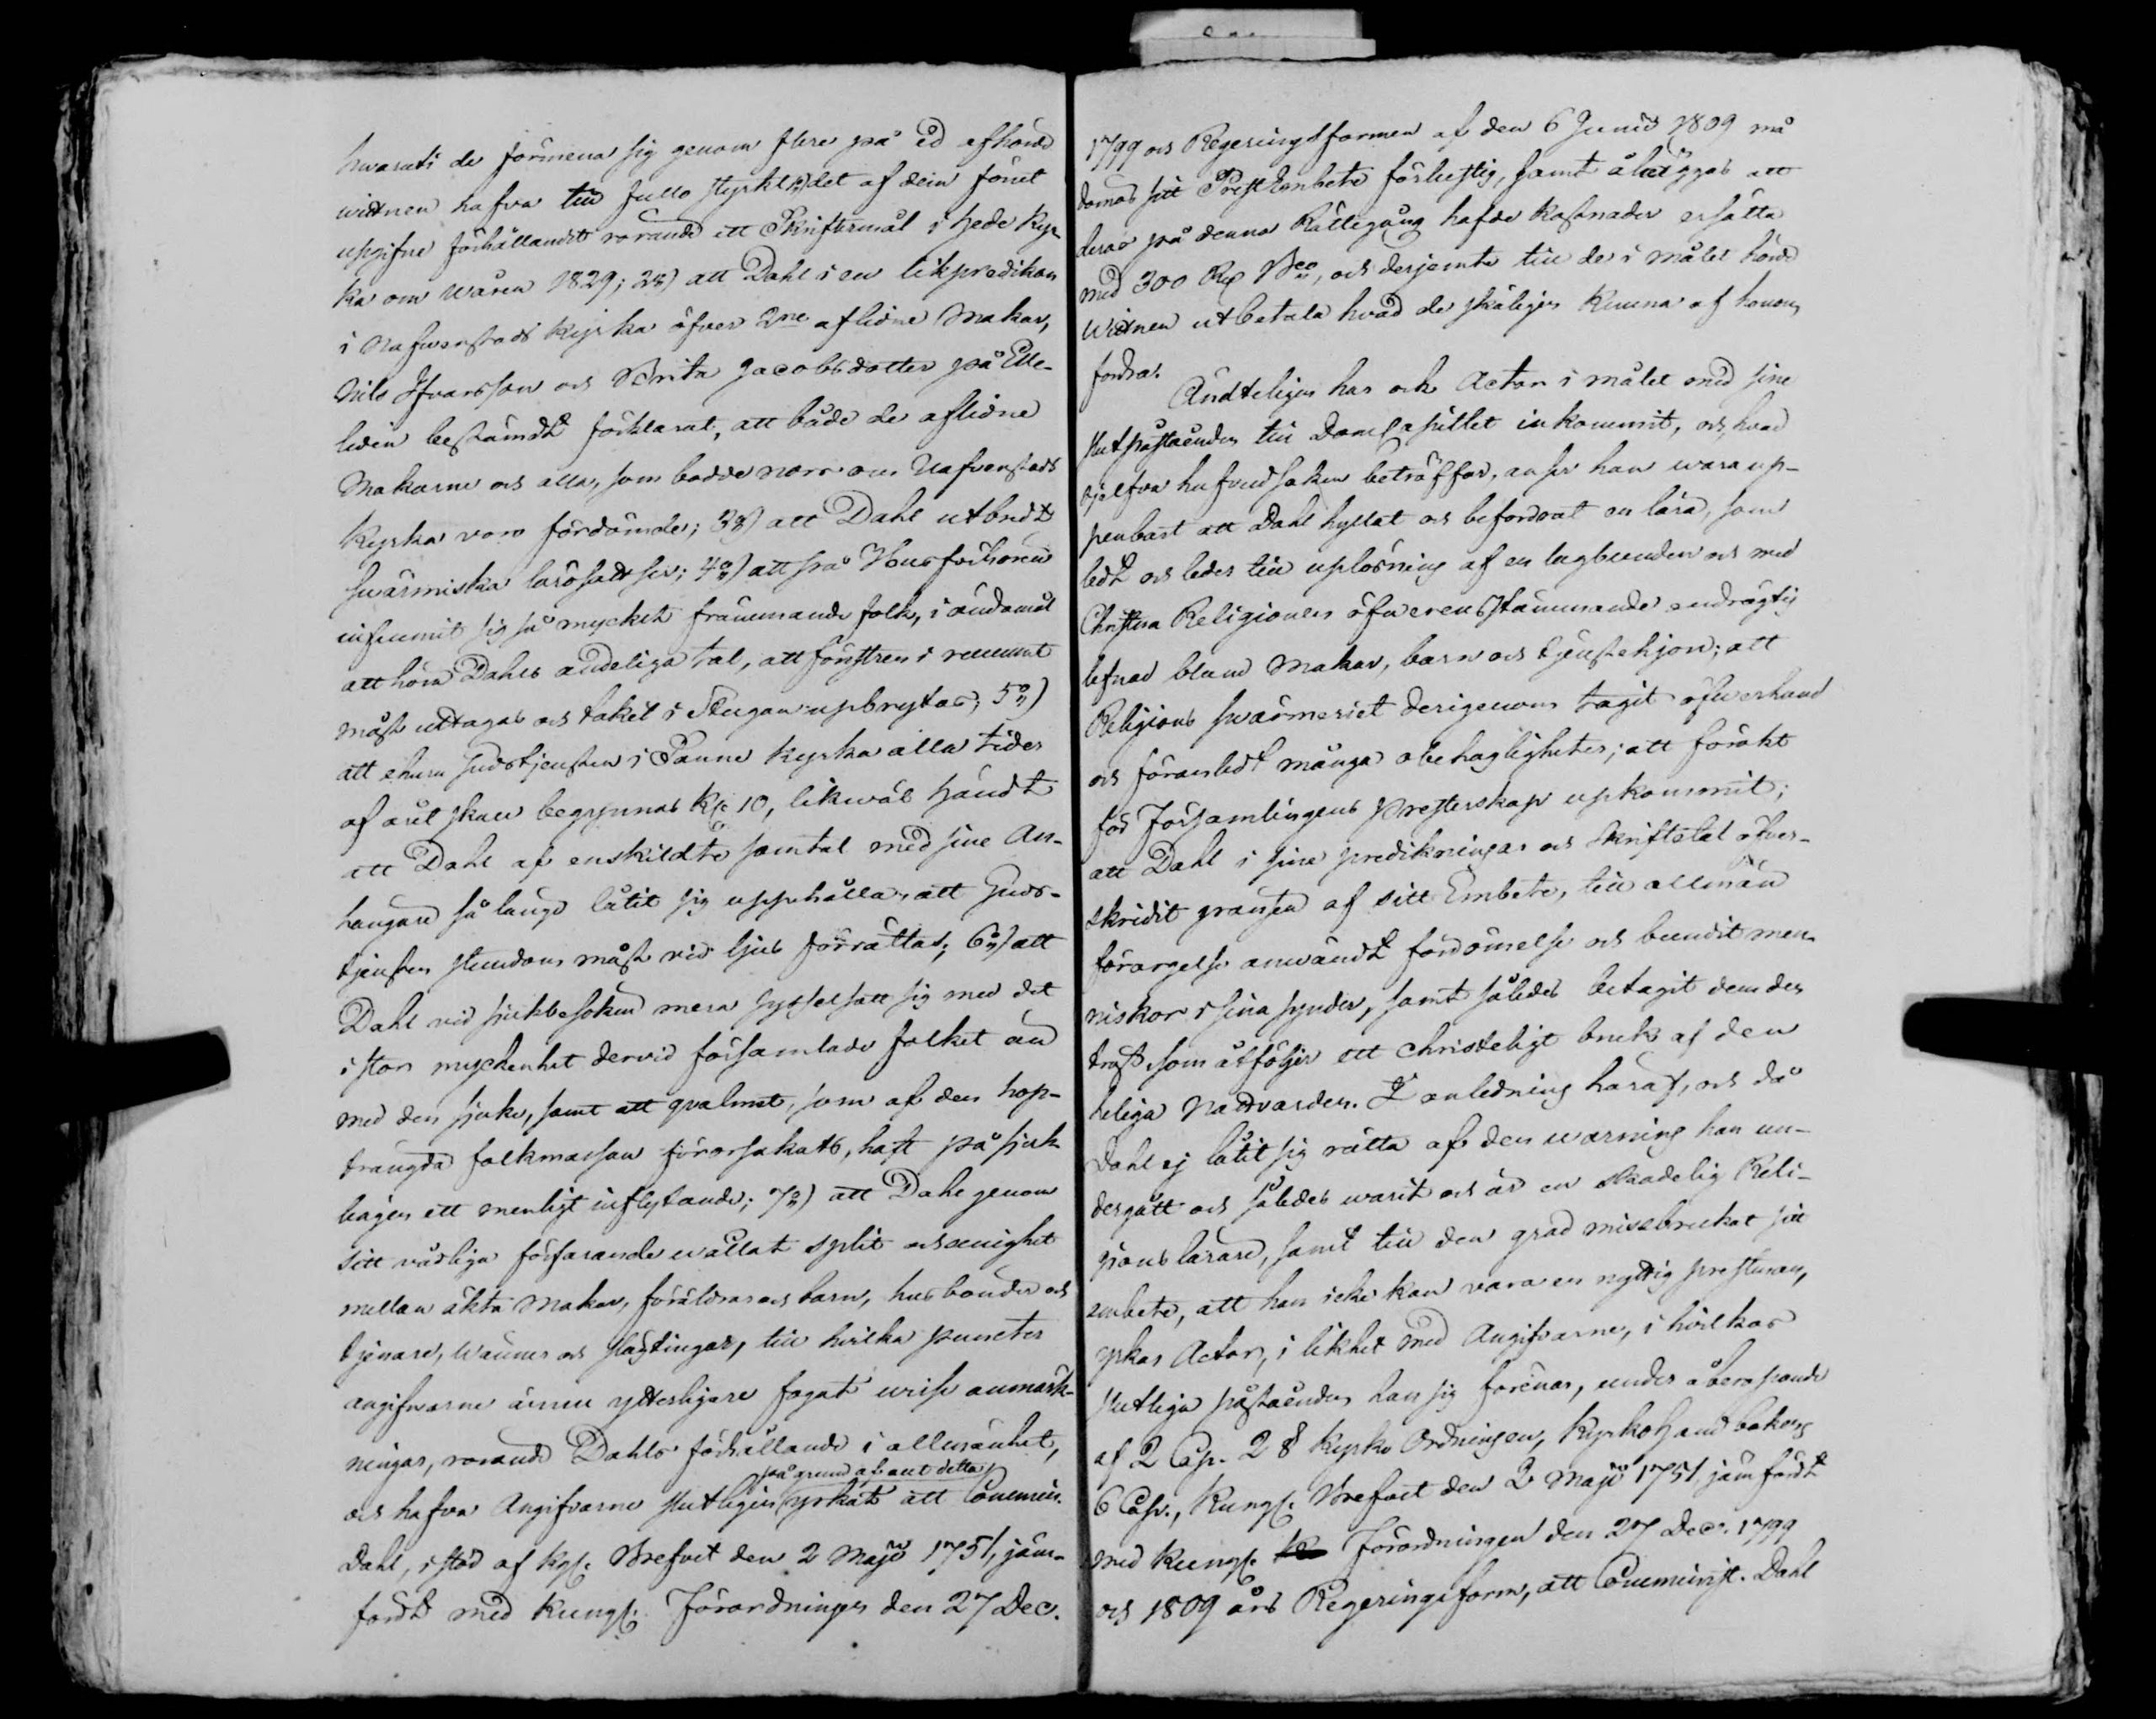 hwaruti de förmena sig genom flere på ed afhörde
wittnen hafva till fullo styrkt 1o) det af dem förut
upgifne förhållandet rörande ett Skriftermål i Hede kyr-
ka om wåren 1829; 2o) att Dahl i en likpredikan
i Nafwerstads kyrka öfver 2ne aflidne Makar,
Nils Ifvarsson och Brita Jacobsdotter på Elle-
liden bestämdt förklarat, att både de aflidne
Makarne och alla, som bodde norr om Nafverstads
kyrka voro fördömde; 3o) att Dahl utbredt
swärmiska lärosatser; 4o) att på Husförhören
infunnit sig så mycket främmande folk, i ändamål
att höra Dahls andeliga tal, att fönstren i rummet
måst uttagas och taket i Stugan upbrytas; 5o)
att ehuru gudstjensten i Tanne kyrka alla tider
af året skall begynnas Kl. 10, likwäl händt
att Dahl af enskildte samtal med sine An-
hängare så länge låtit sig uppehålla, att Guds-
tjensten stundom måst vid ljus förrättas; 6o) att
Dahl vid sjukbesöken mera sysselsatt sig med det
i stor myckenhet dervid församlade folket än
med den sjuke, samt att qvalmet, som af den hop-
trängda folkmassan förorsakats, haft på sjuk-
lingen ett menligt inflytande; 7o) att Dahl genom
sitt vådliga förfarande wållat split och oenighet
mellan äkta Makar, föräldrar och barn, husbönder och
tjenare, wänner och slägtingar, till hvilka puncter
angifvarne ännu ytterligare fogat wisse anmärk-
ningar, rörande Dahls förhållande i allmänhet,
på grund af allt detta
och hafva Angifvarne slutligen yrkat att Comminr.
Dahl, i stöd af Kgl. Brefvet den 2 Maji 1751, jäm-
fördt med Kungl. Förordningen den 27 Dec.
1799 och Regeringsformen af den 6 Junii 1809 må
dömas sitt PrestEmbete förlustig, samt åläggas att
deras på denna Rättegång hafde kostnader ersätta
med 300 Rd Bco, och derjemte till de i målet hörde
Wittnen utbetala hvad de skäligen kunna af honom
fordra.
Ändteligen har och Actor i målet med sine
slutpåståenden till Domcapitlet inkommit, och, hvad
sjelfva hufvudsaken beträffar, anser han wara up-
penbart att Dahl hyllat och befordrat en lära, som
ledt och leder till uplösning af en lagbunden och med
Christna Religionen öfwerensstämmande endrägtig
lefnad bland Makar, barn och tjenstehjon; att
Religions swärmeriet derigenom tagit öfwerhand
och föranledt många obehagligheter; att förakt
för Församlingens presterskap upkommit;
att Dahl i sine predikningar och skriftetal öfver-
skridit gränsen af sitt Embete, till allmän
förargelse användt fördömelse och bundit men-
niskor i sina synder, samt således betagit dem den
tröst, som åtföljer ett christeligt bruk af den
heliga Nattvarden. I anledning häraf, och då
Dahl ej låtit sig rätta af den warning han un-
dergått och således warit och är en skadelig Reli-
gions lärare, samt till den grad missbrukat sitt
embete, att han icke kan vara en nyttig prestman,
yrkar Actor, i likhet med Angifvarne, i hvilkas
slutliga påståenden han sig förenar, under åberopande
af 2 Cap. 2 § Kyrko Ordningen, KyrkoHandbokens
6 Cap., Kungl. Brefvet den 2 Maji 1751, jämfördt
med Kungl. Förordningen den 27 Dec. 1799
och 1809 års Regeringsform, att Comminist. Dahl